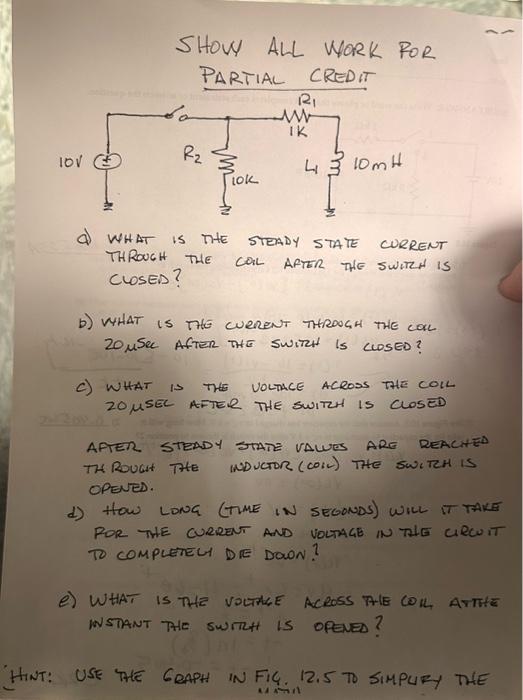 SHOW ALL WORK FOR
PARTIAL CREDIT
R1
1K
10V
R2
10K
L1
10mH
a) WHAT IS THE STEADY STATE CURRENT
THROUGH THE COIL AFTER THE SWITCH IS
CLOSED?
b) WHAT IS THE CURRENT THROUGH THE COIL
20 μSec AFTER THE SWITCH IS CLOSED?
c) WHAT IS THE VOLTAGE ACROSS THE COIL
20 μSEC AFTER THE SWITCH IS CLOSED
AFTER STEADY STATE VALUES ARE REACHED
THROUGH THE INDUCTOR (COIL) THE SWITCH IS
OPENED.
d) HOW LONG (TIME IN SECONDS) WILL IT TAKE
FOR THE CURRENT AND VOLTAGE IN THE CIRCUIT
TO COMPLETELY DIE DOWN?
e) WHAT IS THE VOLTAGE ACROSS THE COIL AT THE
INSTANT THE SWITCH IS OPENED?
HINT: USE THE GRAPH IN FIG. 12.5 TO SIMPLIFY THE